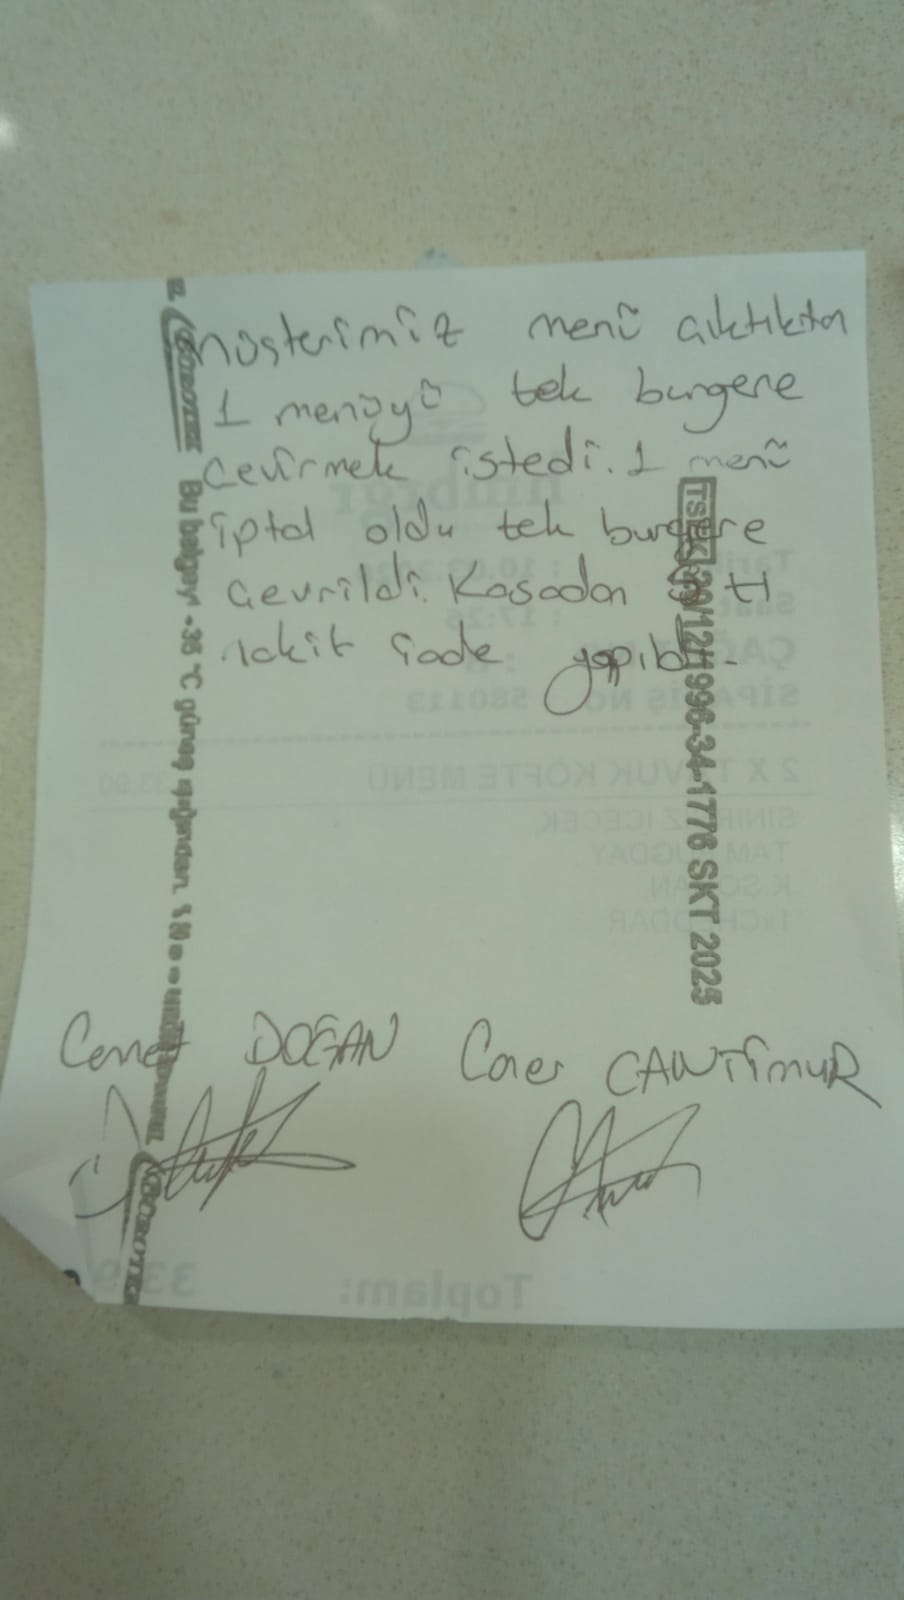 müşterimiz menü çıktıktan
1 menüyü tek burgere
çevirmek istedi. 1 menü
iptal oldu tek burgere
çevrildi. Kasadan TL
nakit iade yapıldı.
DOĞAN Caner CANTİMUR
Bu belgeyi
güneş ışığından,
12/1996-34-1776 SKT 2025
hmbrgr
Tarih : 10.03.
Saat : 17:26
SİPARİŞ NO : 580113
2 X TAVUK KÖFTE MENÜ 33.90
SINIRSIZ ICECEK
TAM BUGDAY
K.SOĞAN
1xCHEDDAR
Toplam: 33.9